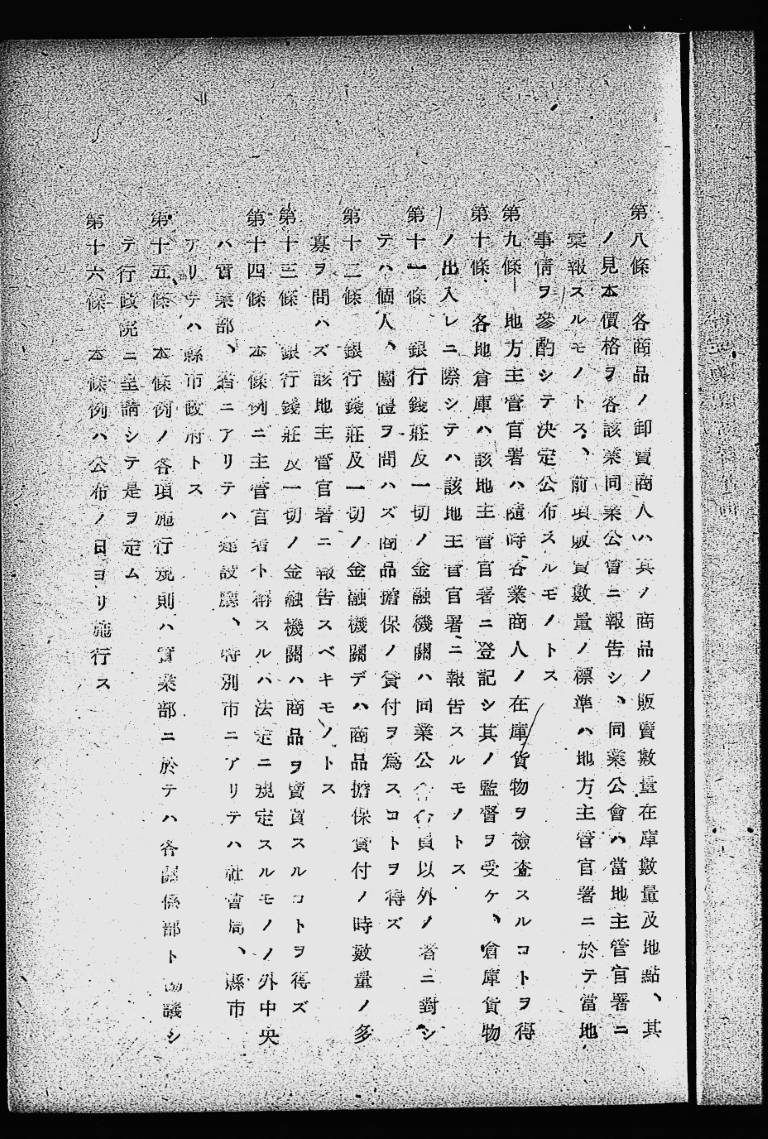 第八條　各商品ノ卸賣商人ハ其ノ商品ノ販賣數量在庫數量及地點、其
ノ見本價格ヲ各該業同業公會ニ報告シ、同業公會ハ當地主管官署ニ
彙報スルモノトス、前項販賣數量ノ標準ハ地方主管官署ニ於テ當地
事情ヲ參酌シテ決定公布スルモノトス
第九條　地方主管官署ハ隨時各業商人ノ在庫貨物ヲ檢査スルコトヲ得
第十條　各地倉庫ハ該地主管官署ニ登記シ其ノ監督ヲ受ケ、倉庫貨物
ノ出入レニ際シテハ該地主管官署ニ報告スルモノトス
第十一條　銀行錢莊及一切ノ金融機關ハ同業公會會員以外ノ者ニ對シ
テハ個人、團體ヲ問ハズ商品擔保ノ貸付ヲ爲スコトヲ得ズ
第十二條　銀行錢莊及一切ノ金融機關デハ商品擔保貸付ノ時數量ノ多
寡ヲ問ハズ該地主管官署ニ報告スベキモノトス
第十三條　銀行錢莊及一切ノ金融機關ハ商品ヲ賣買スルコトヲ得ズ
第十四條　本條例ニ主管官署ト稱スルハ法定ニ規定スルモノノ外中央
ハ實業部、省ニアリテハ建設廳、特別市ニアリテハ社會局、縣市
アリテハ縣市政府トス
第十五條　本條例ノ各項施行規則ハ實業部ニ於テハ各關係部ト協議シ
テ行政院ニ呈請シテ是ヲ定ム
第十六條　本條例ハ公布ノ日ヨリ施行ス